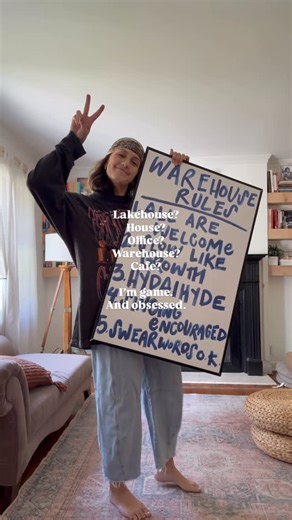 WAREHOUSE
RULES
ALL ARE
WELCOME
LIKE
ENCOURAGED
5. SWEARWORDS OK
Lakehouse?
House?
Office?
Warehouse?
Cafe?
I'm game.
And obsessed.